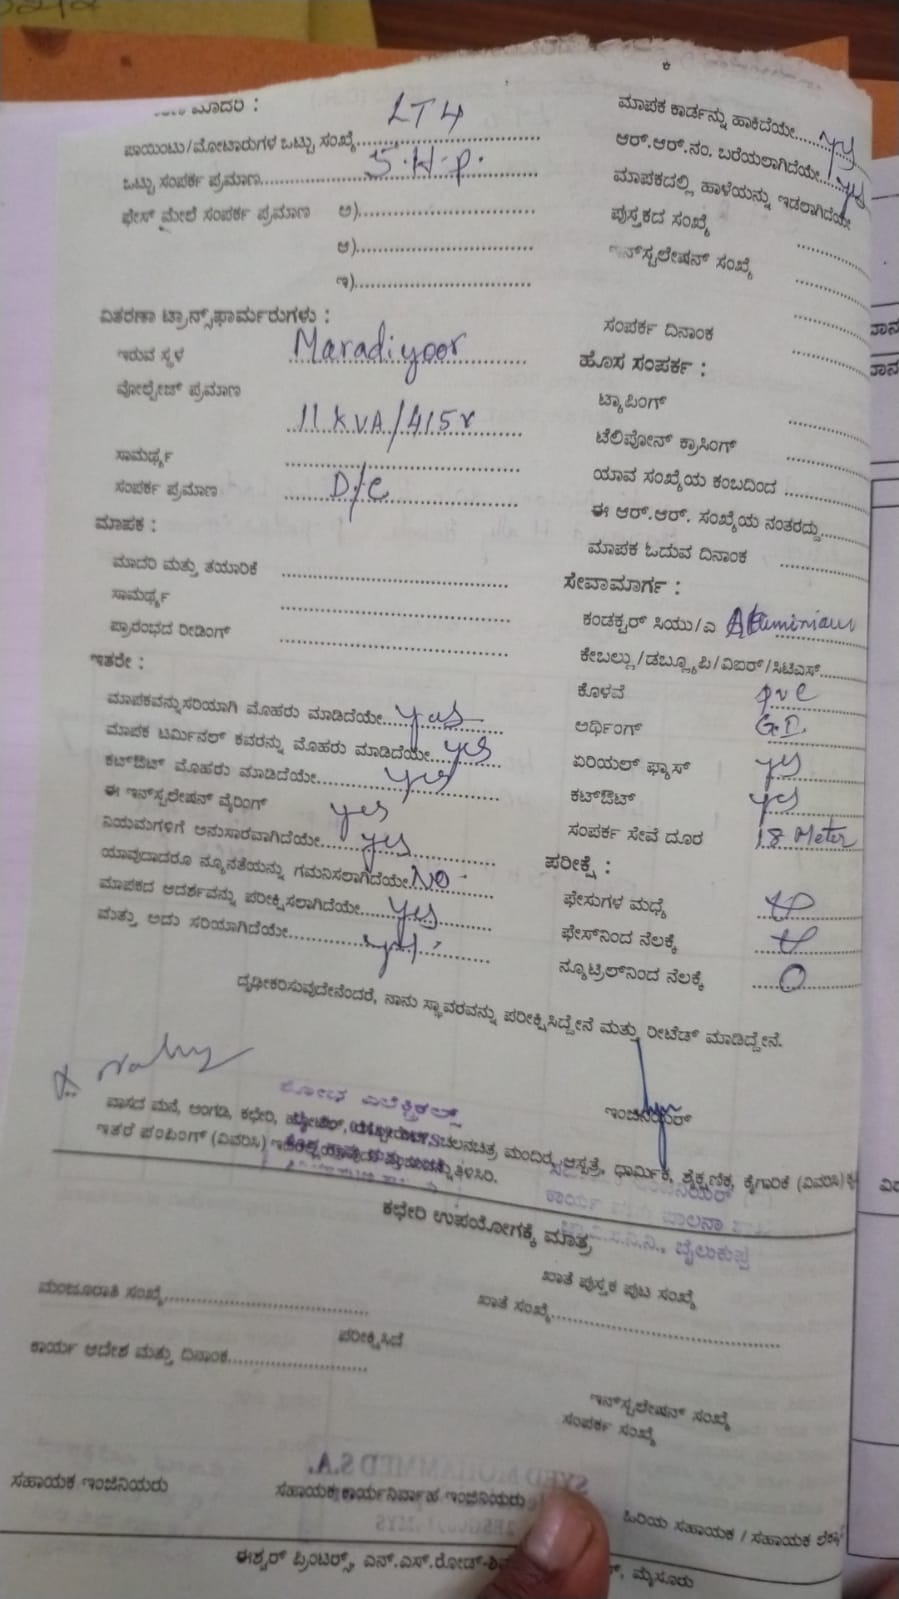 ಮಾದರಿ : LT4
ಪಾಯಿಂಟು/ಮೋಟಾರುಗಳ ಒಟ್ಟು ಸಂಖ್ಯೆ
ಒಟ್ಟು ಸಂಪರ್ಕ ಪ್ರಮಾಣ 5.H.p.
ಫೇಸ್ ಮೇಲೆ ಸಂಪರ್ಕ ಪ್ರಮಾಣ ಅ)
ಆ)
ಇ)
ವಿತರಣಾ ಟ್ರಾನ್ಸ್‌ಫಾರ್ಮರುಗಳು :
ಇರುವ ಸ್ಥಳ Maradiyoor
ವೋಲ್ಟೇಜ್ ಪ್ರಮಾಣ
11 KVA/415v
ಸಾಮರ್ಥ್ಯ
ಸಂಪರ್ಕ ಪ್ರಮಾಣ D/C
ಮಾಪಕ :
ಮಾದರಿ ಮತ್ತು ತಯಾರಿಕೆ
ಸಾಮರ್ಥ್ಯ
ಪ್ರಾರಂಭದ ರೀಡಿಂಗ್
ಇತರೇ :
ಮಾಪಕವನ್ನು ಸರಿಯಾಗಿ ಮೊಹರು ಮಾಡಿದೆಯೇ yes
ಮಾಪಕ ಟರ್ಮಿನಲ್ ಕವರನ್ನು ಮೊಹರು ಮಾಡಿದೆಯೇ yes
ಕಟ್‌ಔಟ್ ಮೊಹರು ಮಾಡಿದೆಯೇ yes
ಈ ಇನ್‌ಸ್ಟಲೇಷನ್ ವೈರಿಂಗ್ yes
ನಿಯಮಗಳಿಗೆ ಅನುಸಾರವಾಗಿದೆಯೇ yes
ಯಾವುದಾದರೂ ನ್ಯೂನತೆಯನ್ನು ಗಮನಿಸಲಾಗಿದೆಯೇ NO
ಮಾಪಕದ ಆದರ್ಶವನ್ನು ಪರೀಕ್ಷಿಸಲಾಗಿದೆಯೇ yes
ಮತ್ತು ಅದು ಸರಿಯಾಗಿದೆಯೇ
ಮಾಪಕ ಕಾರ್ಡನ್ನು ಹಾಕಿದೆಯೇ
ಆರ್.ಆರ್.ನಂ. ಬರೆಯಲಾಗಿದೆಯೇ yes
ಮಾಪಕದಲ್ಲಿ ಹಾಳೆಯನ್ನು ಇಡಲಾಗಿದೆಯೇ
ಪುಸ್ತಕದ ಸಂಖ್ಯೆ
ಇನ್‌ಸ್ಟಲೇಷನ್ ಸಂಖ್ಯೆ
ಸಂಪರ್ಕ ದಿನಾಂಕ
ಹೊಸ ಸಂಪರ್ಕ :
ಟ್ಯಾಪಿಂಗ್
ಟೆಲಿಫೋನ್ ಕ್ರಾಸಿಂಗ್
ಯಾವ ಸಂಖ್ಯೆಯ ಕಂಬದಿಂದ
ಈ ಆರ್.ಆರ್. ಸಂಖ್ಯೆಯ ನಂತರದ್ದು
ಮಾಪಕ ಓದುವ ದಿನಾಂಕ
ಸೇವಾಮಾರ್ಗ :
ಕಂಡಕ್ಟರ್ ಸಿಯು/ಎ
ಕೇಬಲ್ಲು/ಡಬ್ಲ್ಯೂಪಿ/ವಿಐರ್/ಸಿಟಿಎಸ್
ಕೊಳವೆ pvc
ಅರ್ಥಿಂಗ್ G.I.
ಏರಿಯಲ್ ಫ್ಯೂಸ್ yes
ಕಟ್‌ಔಟ್ yes
ಸಂಪರ್ಕ ಸೇವೆ ದೂರ 18 Meter
ಪರೀಕ್ಷೆ :
ಫೇಸುಗಳ ಮಧ್ಯೆ
ಫೇಸ್‌ನಿಂದ ನೆಲಕ್ಕೆ
ನ್ಯೂಟ್ರಿಲ್‌ನಿಂದ ನೆಲಕ್ಕೆ 0
ದೃಢೀಕರಿಸುವುದೇನೆಂದರೆ, ನಾನು ಸ್ಥಾವರವನ್ನು ಪರೀಕ್ಷಿಸಿದ್ದೇನೆ ಮತ್ತು ರೀಟೆಡ್ ಮಾಡಿದ್ದೇನೆ.
ಎಲೆಕ್ಟ್ರಿಕಲ್ಸ್
ಇಂಜಿನಿಯರ್
ವಾಸದ ಮನೆ, ಅಂಗಡಿ, ಕಛೇರಿ, ಚಲನಚಿತ್ರ ಮಂದಿರ, ಆಸ್ಪತ್ರೆ, ಧಾರ್ಮಿಕ, ಶೈಕ್ಷಣಿಕ, ಕೈಗಾರಿಕೆ (ವಿವರಿಸಿ)
ಇತರೆ ಪಂಪಿಂಗ್ (ವಿವರಿಸಿ) ತಿಳಿಸಿರಿ.
ಕಾರ್ಯ ಪಾಲನಾ
ಬೈಲುಕುಪ್ಪ
ಕಛೇರಿ ಉಪಯೋಗಕ್ಕೆ ಮಾತ್ರ
ಖಾತೆ ಪುಸ್ತಕ ಪುಟ ಸಂಖ್ಯೆ
ಮಂಜೂರಾತಿ ಸಂಖ್ಯೆ ಖಾತೆ ಸಂಖ್ಯೆ
ಪರೀಕ್ಷಿಸಿದೆ
ಕಾರ್ಯ ಆದೇಶ ಮತ್ತು ದಿನಾಂಕ
ಇನ್‌ಸ್ಟಲೇಷನ್ ಸಂಖ್ಯೆ
ಸಂಪರ್ಕ ಸಂಖ್ಯೆ
ಸಹಾಯಕ ಇಂಜಿನಿಯರು ಸಹಾಯಕ ಕಾರ್ಯನಿರ್ವಾಹ ಇಂಜಿನಿಯರು ಹಿರಿಯ ಸಹಾಯಕ / ಸಹಾಯಕ
ಈಶ್ವರ್ ಪ್ರಿಂಟರ್ಸ್, ಎನ್.ಎಸ್.ರೋಡ್ ಮೈಸೂರು